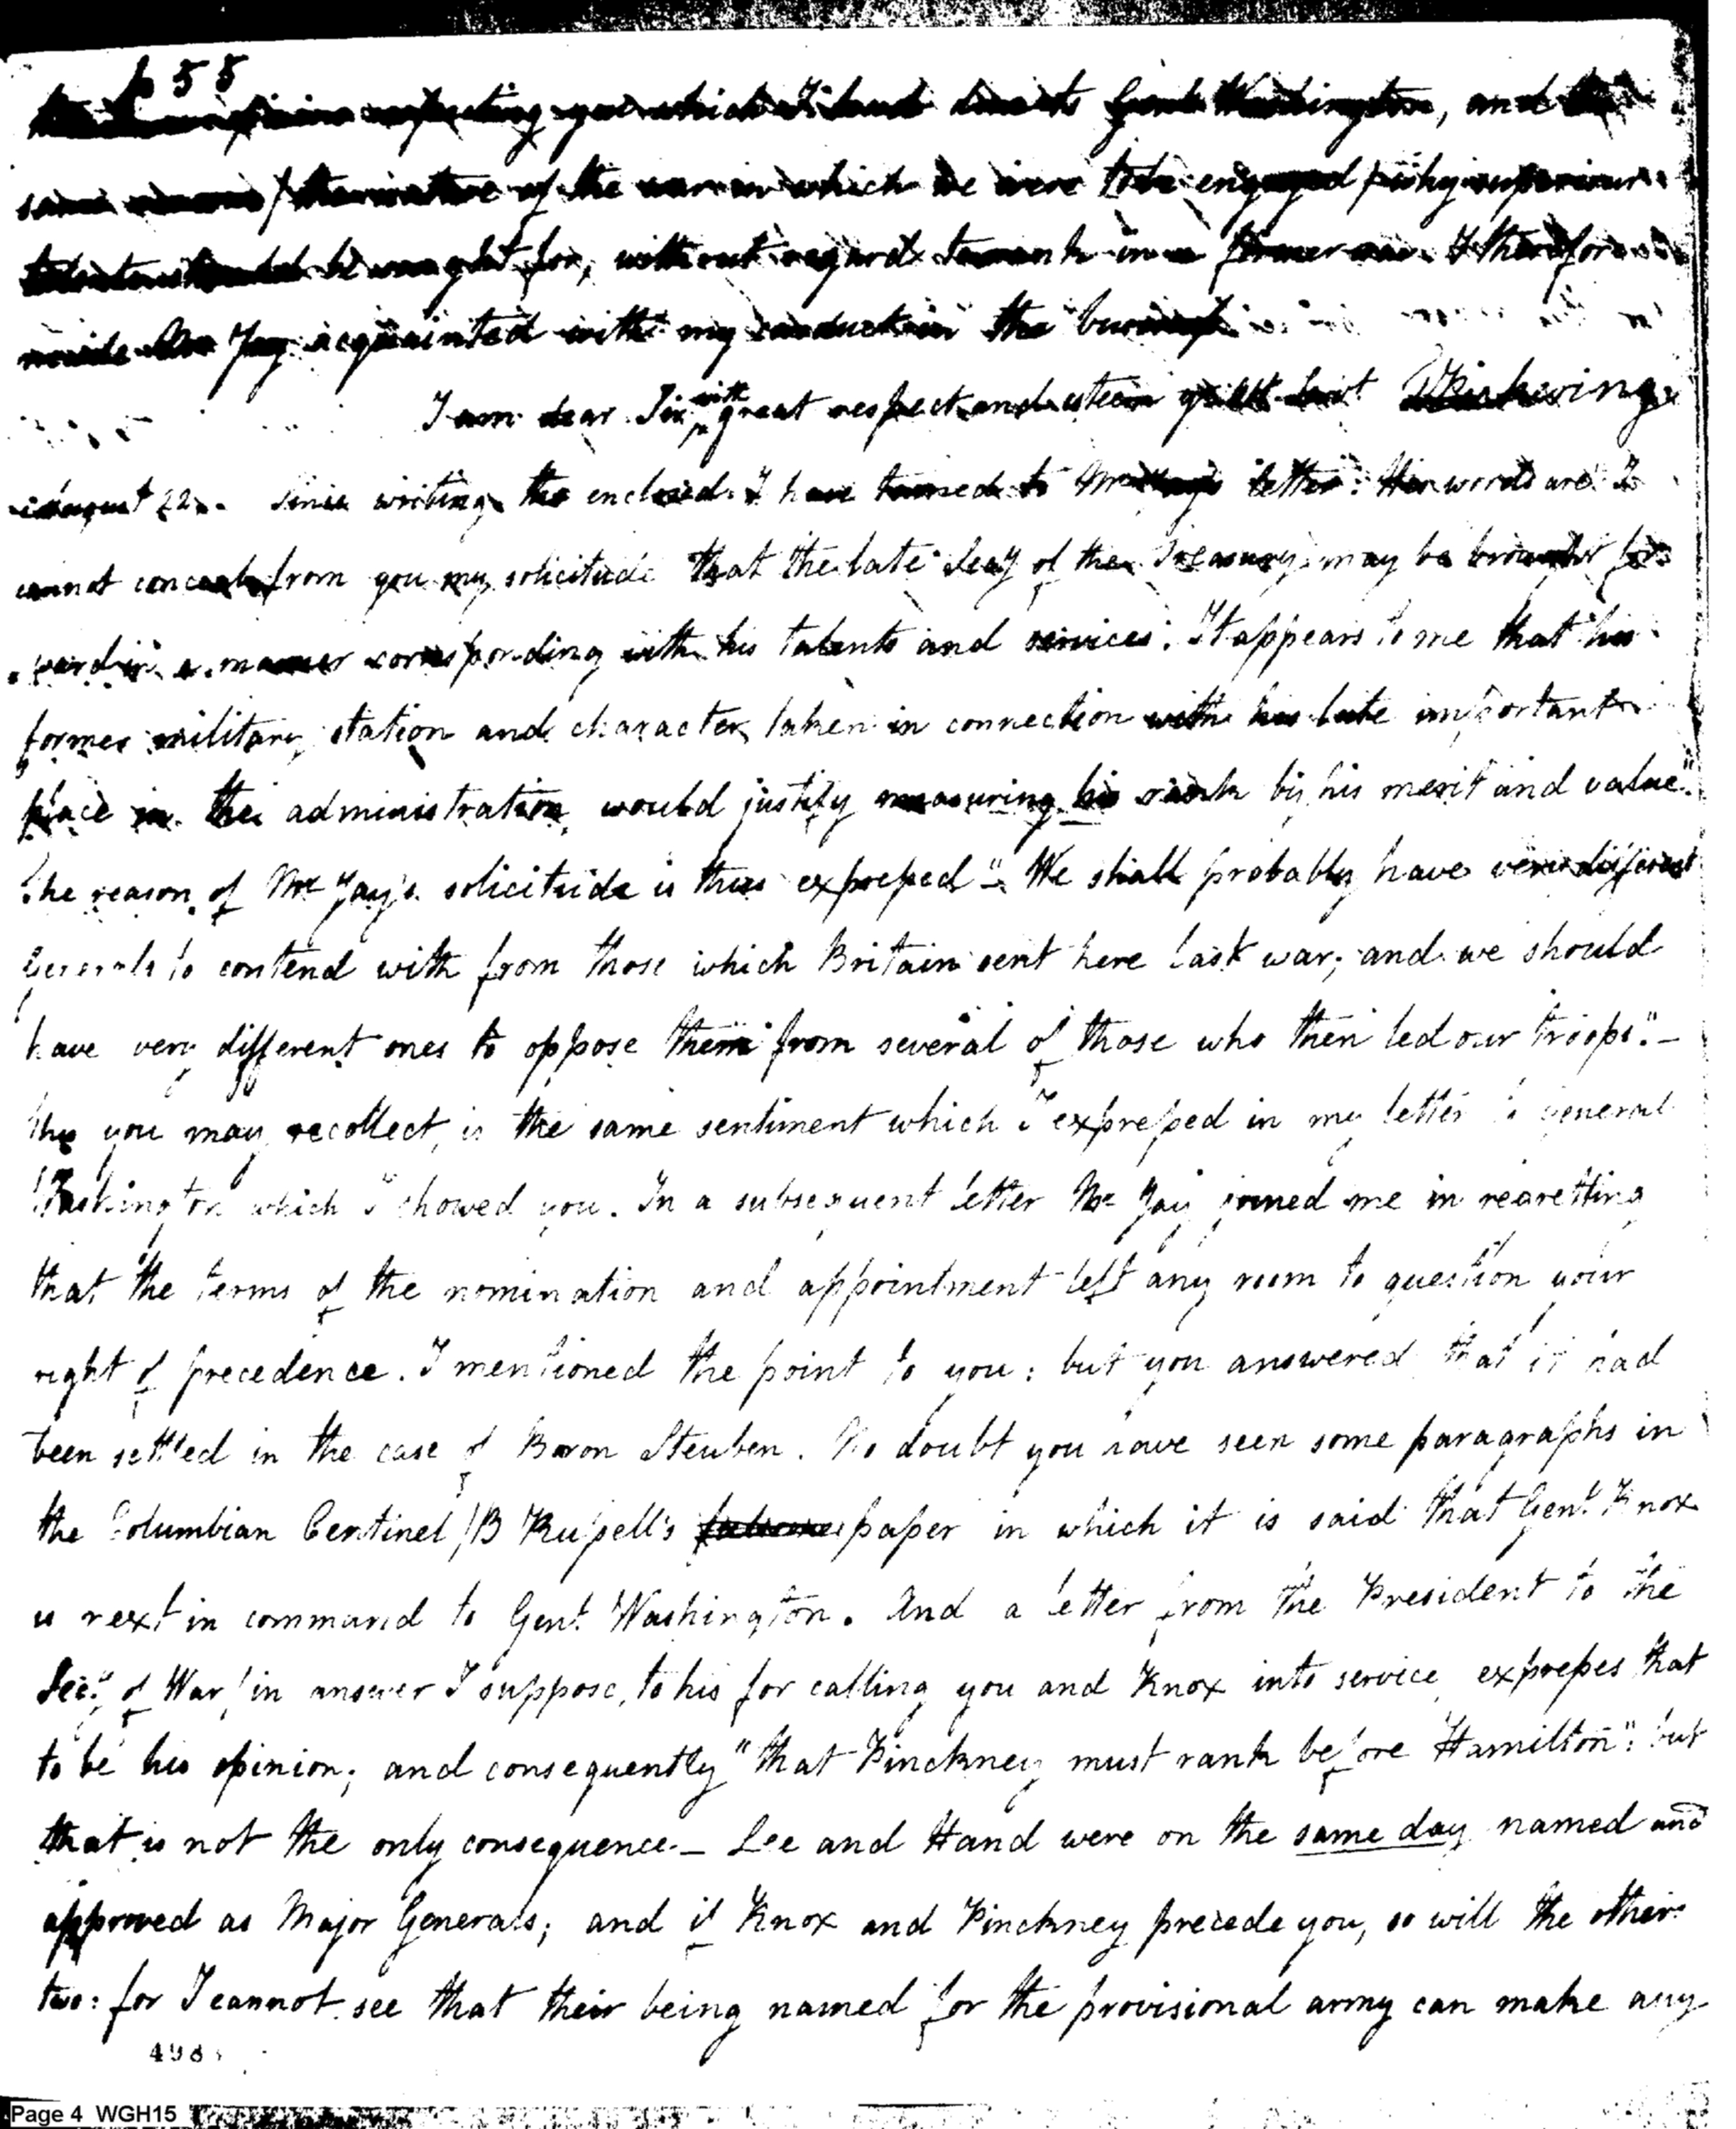 p 55
opinion respecting you which I had sent to Genl Washington, and the
same reasons / the nature of the war in which we were to be engaged / why superiour
talents should be sought for, without regard to rank in a former war. I therefore
made Mr Jay acquainted with my conduct in the business
I am dear Sir, with great respect and esteem yr obt servt T Pickering.
August 22. Since writing the enclosed I have turned to Mr Jay's letter: the words are "I
cannot conceal from you my solicitude that the late Secy of the Treasury may be brought for
ward in a manner corresponding with his talents and services. It appears to me that his
former military station and character, taken in connection with his late important
place in the administration, would justify measuring his rank by his merit and value."
The reason of Mr Jay's solicitude is thus expressed "We shall probably have very different
Generals to contend with from those which Britain sent here last war; and we should
have very different ones to oppose them from several of those who then led our troops."—
This you may recollect, is the same sentiment which I expressed in my letter to general
Washington which I showed you. In a subsequent letter Mr Jay joined me in regretting
that the terms of the nomination and appointment left any room to question your
right of precedence. I mentioned the point to you: but you answered that it had
been settled in the case of Baron Steuben. No doubt you have seen some paragraphs in
the Columbian Centinel / B Russell's paper in which it is said that Genl. Knox
is next in command to Genl. Washington. And a letter from the President to the
Secy. of War / in answer I suppose, to his for calling you and Knox into service, expresses that
to be his opinion; and consequently "that Pinckney must rank before Hamilton": but
that is not the only consequence— Lee and Hand were on the same day named and
approved as Major Generals; and if Knox and Pinckney precede you, so will the other
two: for I cannot see that their being named for the provisional army can make any
498
Page 4 WGH15